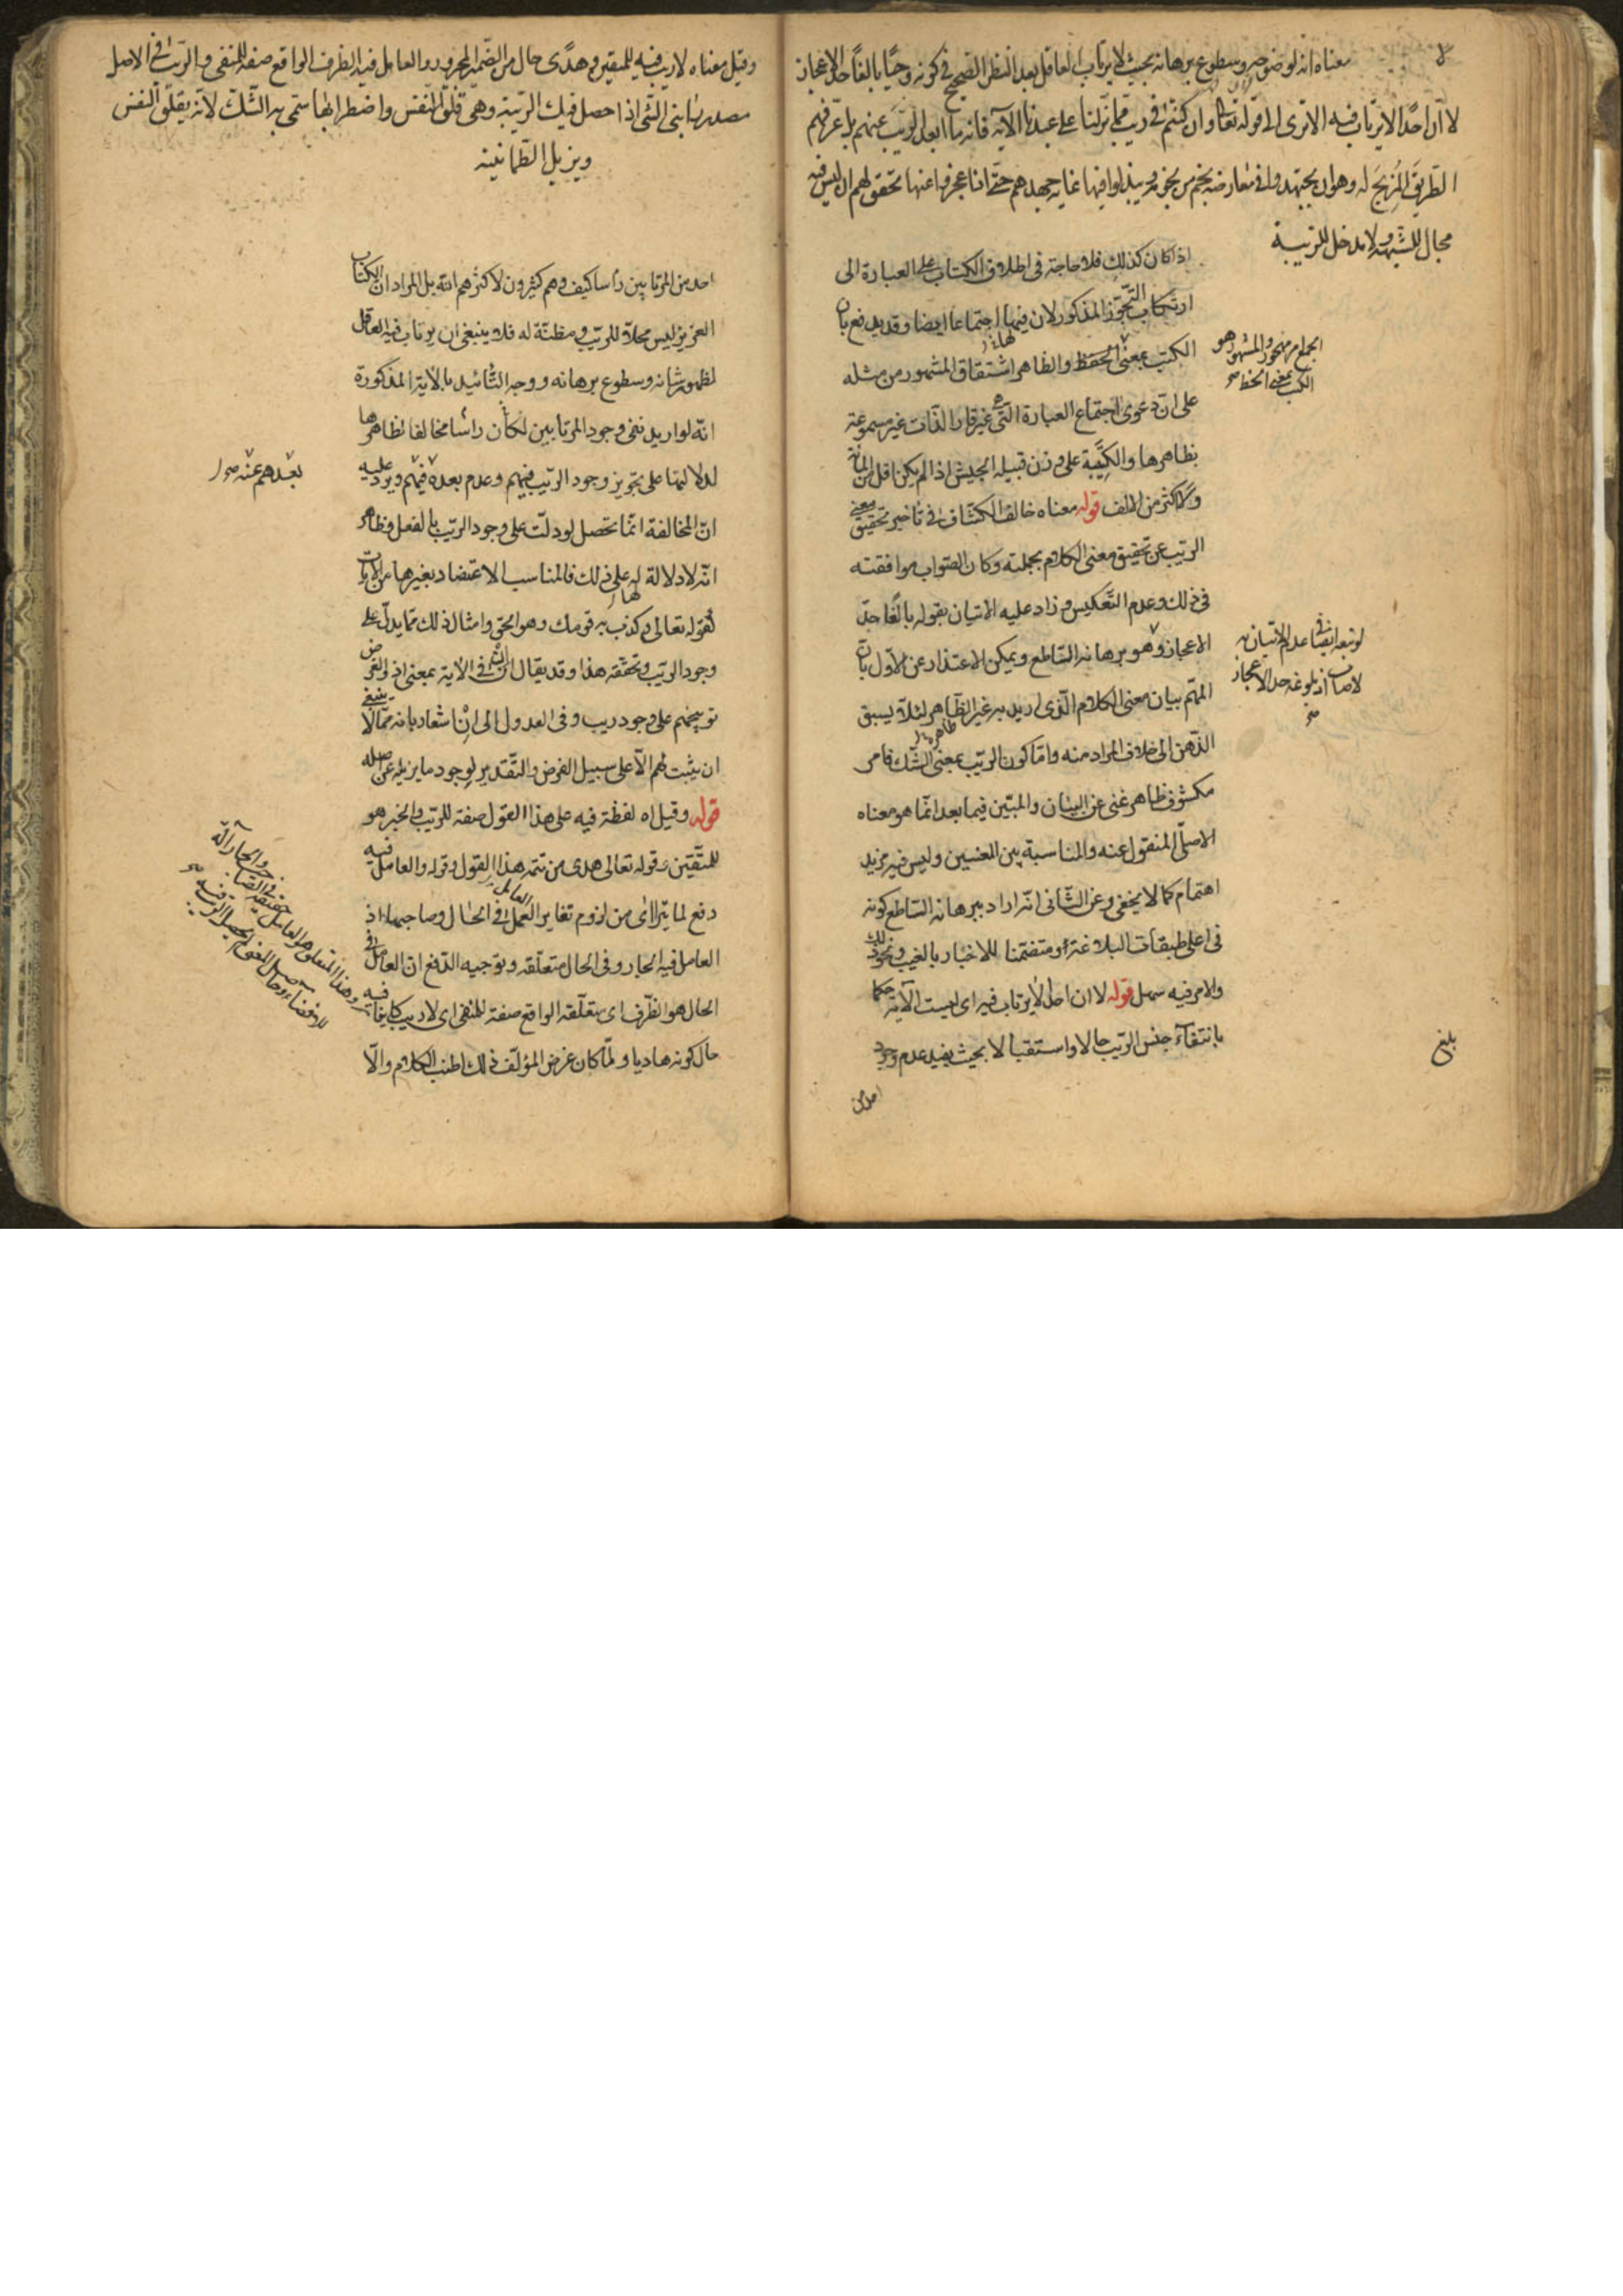 معناه انه لوضوحه وسطوع برهانه بحيث لا يرتاب العاقل بعد النظر الصحيح في كونه وحيًا بالغًا حد الاعجاز
لا ان احدًا لا يرتاب فيه الا ترى الى قوله تعالى وان كنتم في ريب مما نزلنا على عبدنا الآية فانه ما ابعد الريب عنهم بل عرفهم
الطريق المزيح له وهو ان يجتهدوا في معارضة نجم من نجومه ويبذلوا فيها غاية جهدهم حتى اذا عجزوا عنها تحقق لهم ان ليس فيه
مجال للشبهة ولا مدخل للريبة
اذا كان كذلك فلا حاجة في اطلاق الكتاب على العبارة الى
ارتكاب التجوّز المذكور لان فيها اجتماعا ايضا وقد يدفع بان
الكتب بمعنى الحفظ والظاهر اشتقاق المشهور من مثله
على ان دعوى اجتماع العبارة التي هي غير قار الذات غير مسموعة
بظاهرها والكتيبة على وزن قبيلة الجيش اذا لم يكن اقل من المائة
ولا اكثر من الالف قوله معناه خالف الكشاف في تاخير تحقيق معنى
الريب عن تحقيق معنى الكلام بجملته وكان الصواب موافقته
في ذلك وعدم التعكيس وزاد عليه الاتيان بقوله بالغًا حدّ
الاعجاز وهو برهانه الساطع ويمكن الاعتذار عن الاول بان
المهم بيان معنى الكلام الذى اريد به غير الظاهر لئلا يسبق
الذهن الى خلاف المراد منه واما كون الريب بمعنى الشك فامر
مكشوف ظاهر غنى عن البيان والمبيّن فيما بعد انما هو معناه
الاصلى المنقول عنه والمناسبة بين المعنيين وليس فيه مزيد
اهتمام كما لا يخفى وعن الثانى انه اراد ببرهانه الساطع كونه
في اعلى طبقات البلاغة او متضمنا للاخبار بالغيب ونحو ذلك
والامر فيه سهل قوله لا ان احدا لا يرتاب فيه اى ليست الآية حكما
بانتفاء جنس الريب حالا واستقبالا بحيث يفيد عدم وجود
احد من
والمشهور هو
الكتب بمعنى الخط صح
بلغ
وقيل معناه لا ريب فيه للمتقين وهدًى حال من الضمير المجرور والعامل فيه الظرف الواقع صفة للمنفى والريب في الاصل
مصدر رابنى الشئ اذا حصل فيك الريبة وهى قلق النفس واضطرابها سمى به الشك لانه يقلق النفس
ويزيل الطمانينة
احد من المرتابين راسا كيف وهم كثيرون لا كثرهم الله بل المراد ان الكتاب
العزيز ليس محلا للريب ومظنة له فلا ينبغى ان يرتاب فيه العاقل
لظهور شانه وسطوع برهانه ووجه التأييد بالآية المذكورة
انه لو اريد نفى وجود المرتابين لكان راسا مخالفا لظاهرها
لدلالتها على تجويز وجود الريب فيهم وعدم بعده فيهم ويرد عليه
ان المخالفة انما تحصل لو دلت على وجود الريب بالفعل وظاهر
انه لا دلالة لها على ذلك فالمناسب الاعتضاد بغيرها من الآيات
كقوله تعالى وكذب به قومك وهو الحق وامثال ذلك مما يدل على
وجود الريب وتحققه هذا وقد يقال ان ان في الآية بمعنى اذ والغرض
توبيخهم على وجود ريب وفى العدول الى ان اشعار بانه مما لا ينبغى
ان يثبت لهم الا على سبيل الفرض والتقدير لوجود ما يزيله عن اصله
قوله وقيل اه لفظة فيه على هذا القول صفة للريب والخبر هو
للمتقين وقوله تعالى هدى من تتمة هذا القول وقوله والعامل فيه
دفع لما يتراآى من لزوم تغاير العامل في الحال وصاحبها اذ
العامل فيه الجار وفى الحال متعلقه وتوجيه الدفع ان العامل في
الحال هو الظرف اى متعلقه الواقع صفة للمنفى اى لا ريب كاينا فيه
حال كونه هاديا ولمّا كان غرض المؤلف ذلك اطنب الكلام والّا
بعدهم عنه صح